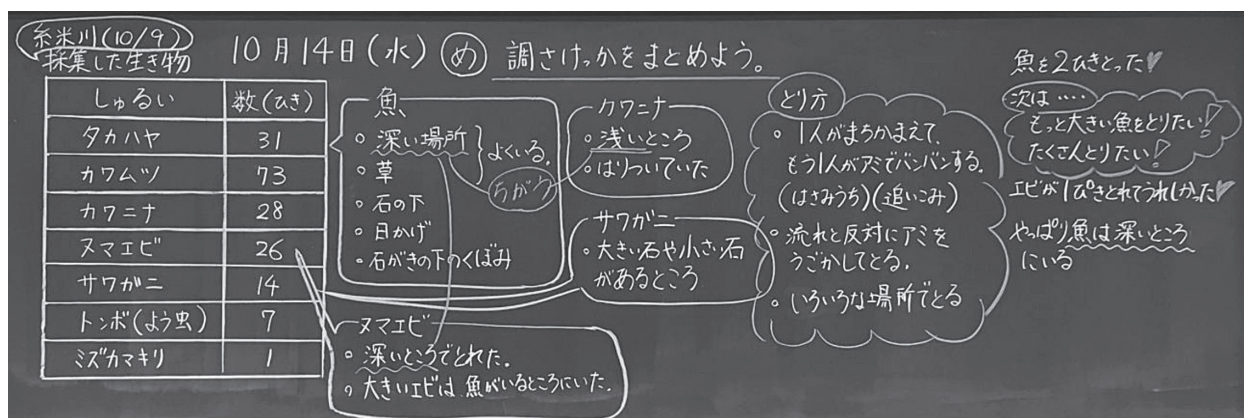 糸米川(10/9)
採集した生き物
10月14日(水) め 調さけっかをまとめよう。
しゅるい 数(ひき)
タカハヤ 31
カワムツ 73
カワニナ 28
ヌマエビ 26
サワガニ 14
トンボ(よう虫) 7
ミズカマキリ 1
魚
・深い場所
・草
よくいる。
・石の下
・日かげ
・石がきの下のくぼみ
ちがう
カワニナ
・浅いところ
・はりついていた
サワガニ
・大きい石や小さい石
があるところ
ヌマエビ
・深いところでとれた。
・大きいエビは魚がいるところにいた。
とり方
・1人がまちかまえて、
もう1人がアミでバンバンする。
(はさみうち)(追いこみ)
・流れと反対にアミを
うごかしてとる。
・いろいろな場所でとる
魚を2ひきとった♥
次は‥‥
もっと大きい魚をとりたい!
たくさんとりたい!
エビが1ぴきとれてうれしかった♥
やっぱり魚は深いところ
にいる